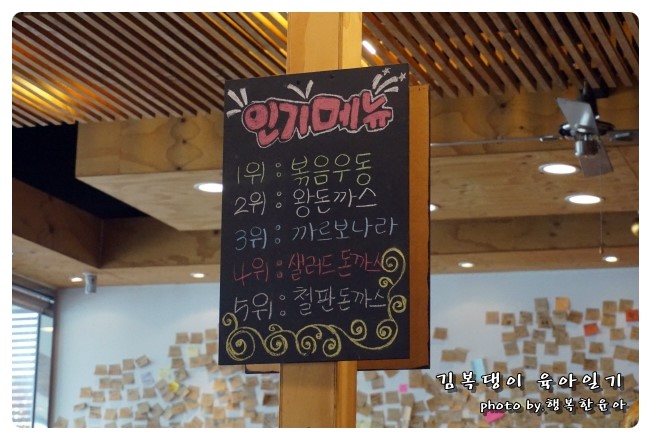 인기메뉴
1위 : 볶음우동
2위 : 왕돈까스
3위 : 까르보나라
4위 : 샐러드돈까스
5위 : 철판돈까스
김복댕이 육아일기
photo by.행복한윤아